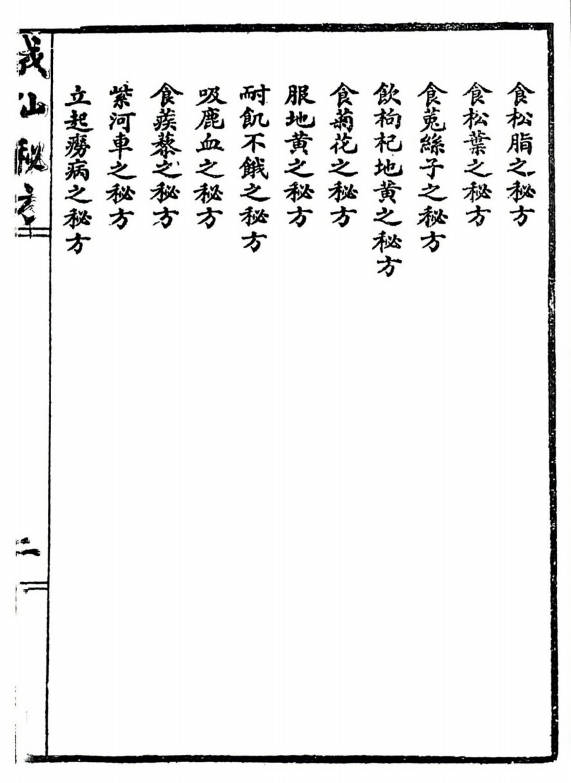 食松脂之秘方
食松葉之秘方
食菟絲子之秘方
飲枸杞地黄之秘方
食菊花之秘方
服地黄之秘方
耐飢不餓之秘方
吸鹿血之秘方
食蒺藜之秘方
紫河車之秘方
立起癆病之秘方
成仙秘方
二